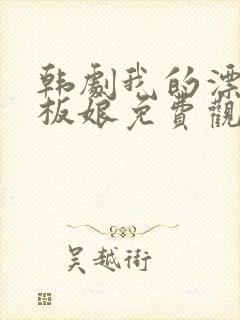 韩劇我的漂
板娘免費觀
吴越術